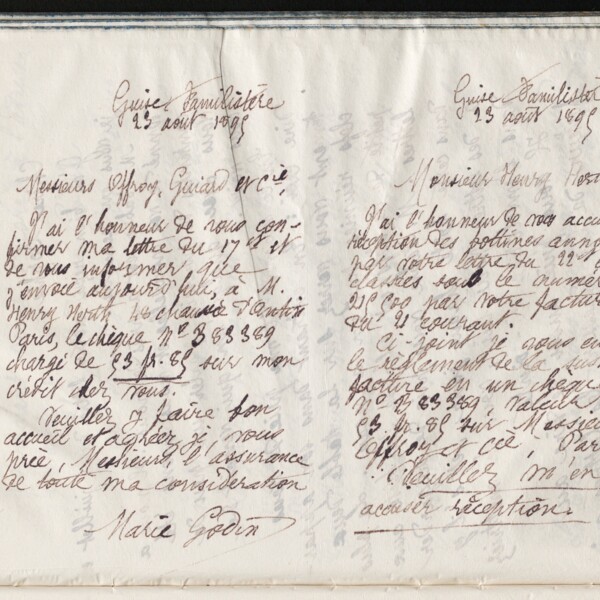 Guise Familistère
23 août 1895
Messieurs Offroy, Guiard et Cie,
J'ai l'honneur de vous con-
firmer ma lettre du 17 ct et
de vous informer que
j'envoie aujourd'hui, à M.
Henry 48 chaussée d'Antin
Paris, le chèque No B 83389
chargé de 53 fr. 85 sur mon
crédit chez vous.
Veuillez y faire bon
accueil et agréer, je vous
prie, Messieurs, l'assurance
de toute ma considération
Marie Godin
Guise Familistè
23 août 1895
Monsieur Henry
J'ai l'honneur de vous accu
réception des bottines ann
par votre lettre du 22 c
classées sous le numér
par votre factur
du 21 courant.
Ci-joint je vous en
le règlement de la sus
facture en un chèqu
No B 83389, valeur
53 fr. 85 sur Messieu
Offroy et Cie, Par
Veuillez m'en
accuser réception.